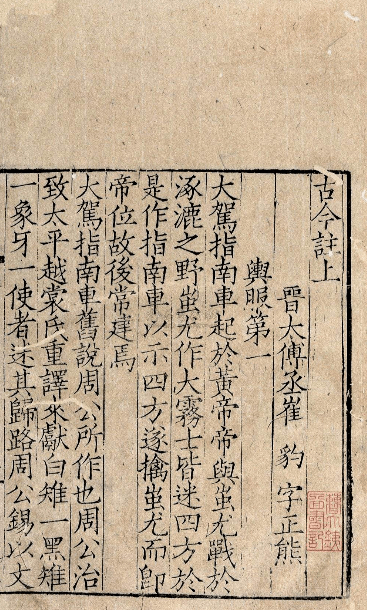 古今註上
晉太傅丞崔豹字正熊
輿服第一
大駕指南車起於黃帝帝與蚩尤戰於
涿鹿之野蚩尤作大霧士皆迷四方於
是作指南車以示四方遂擒蚩尤而卽
帝位故後常建焉
大駕指南車舊說周公所作也周公治
致太平越裳氏重譯來獻白雉一黑雉
一象牙一使者迷其歸路周公錫以文